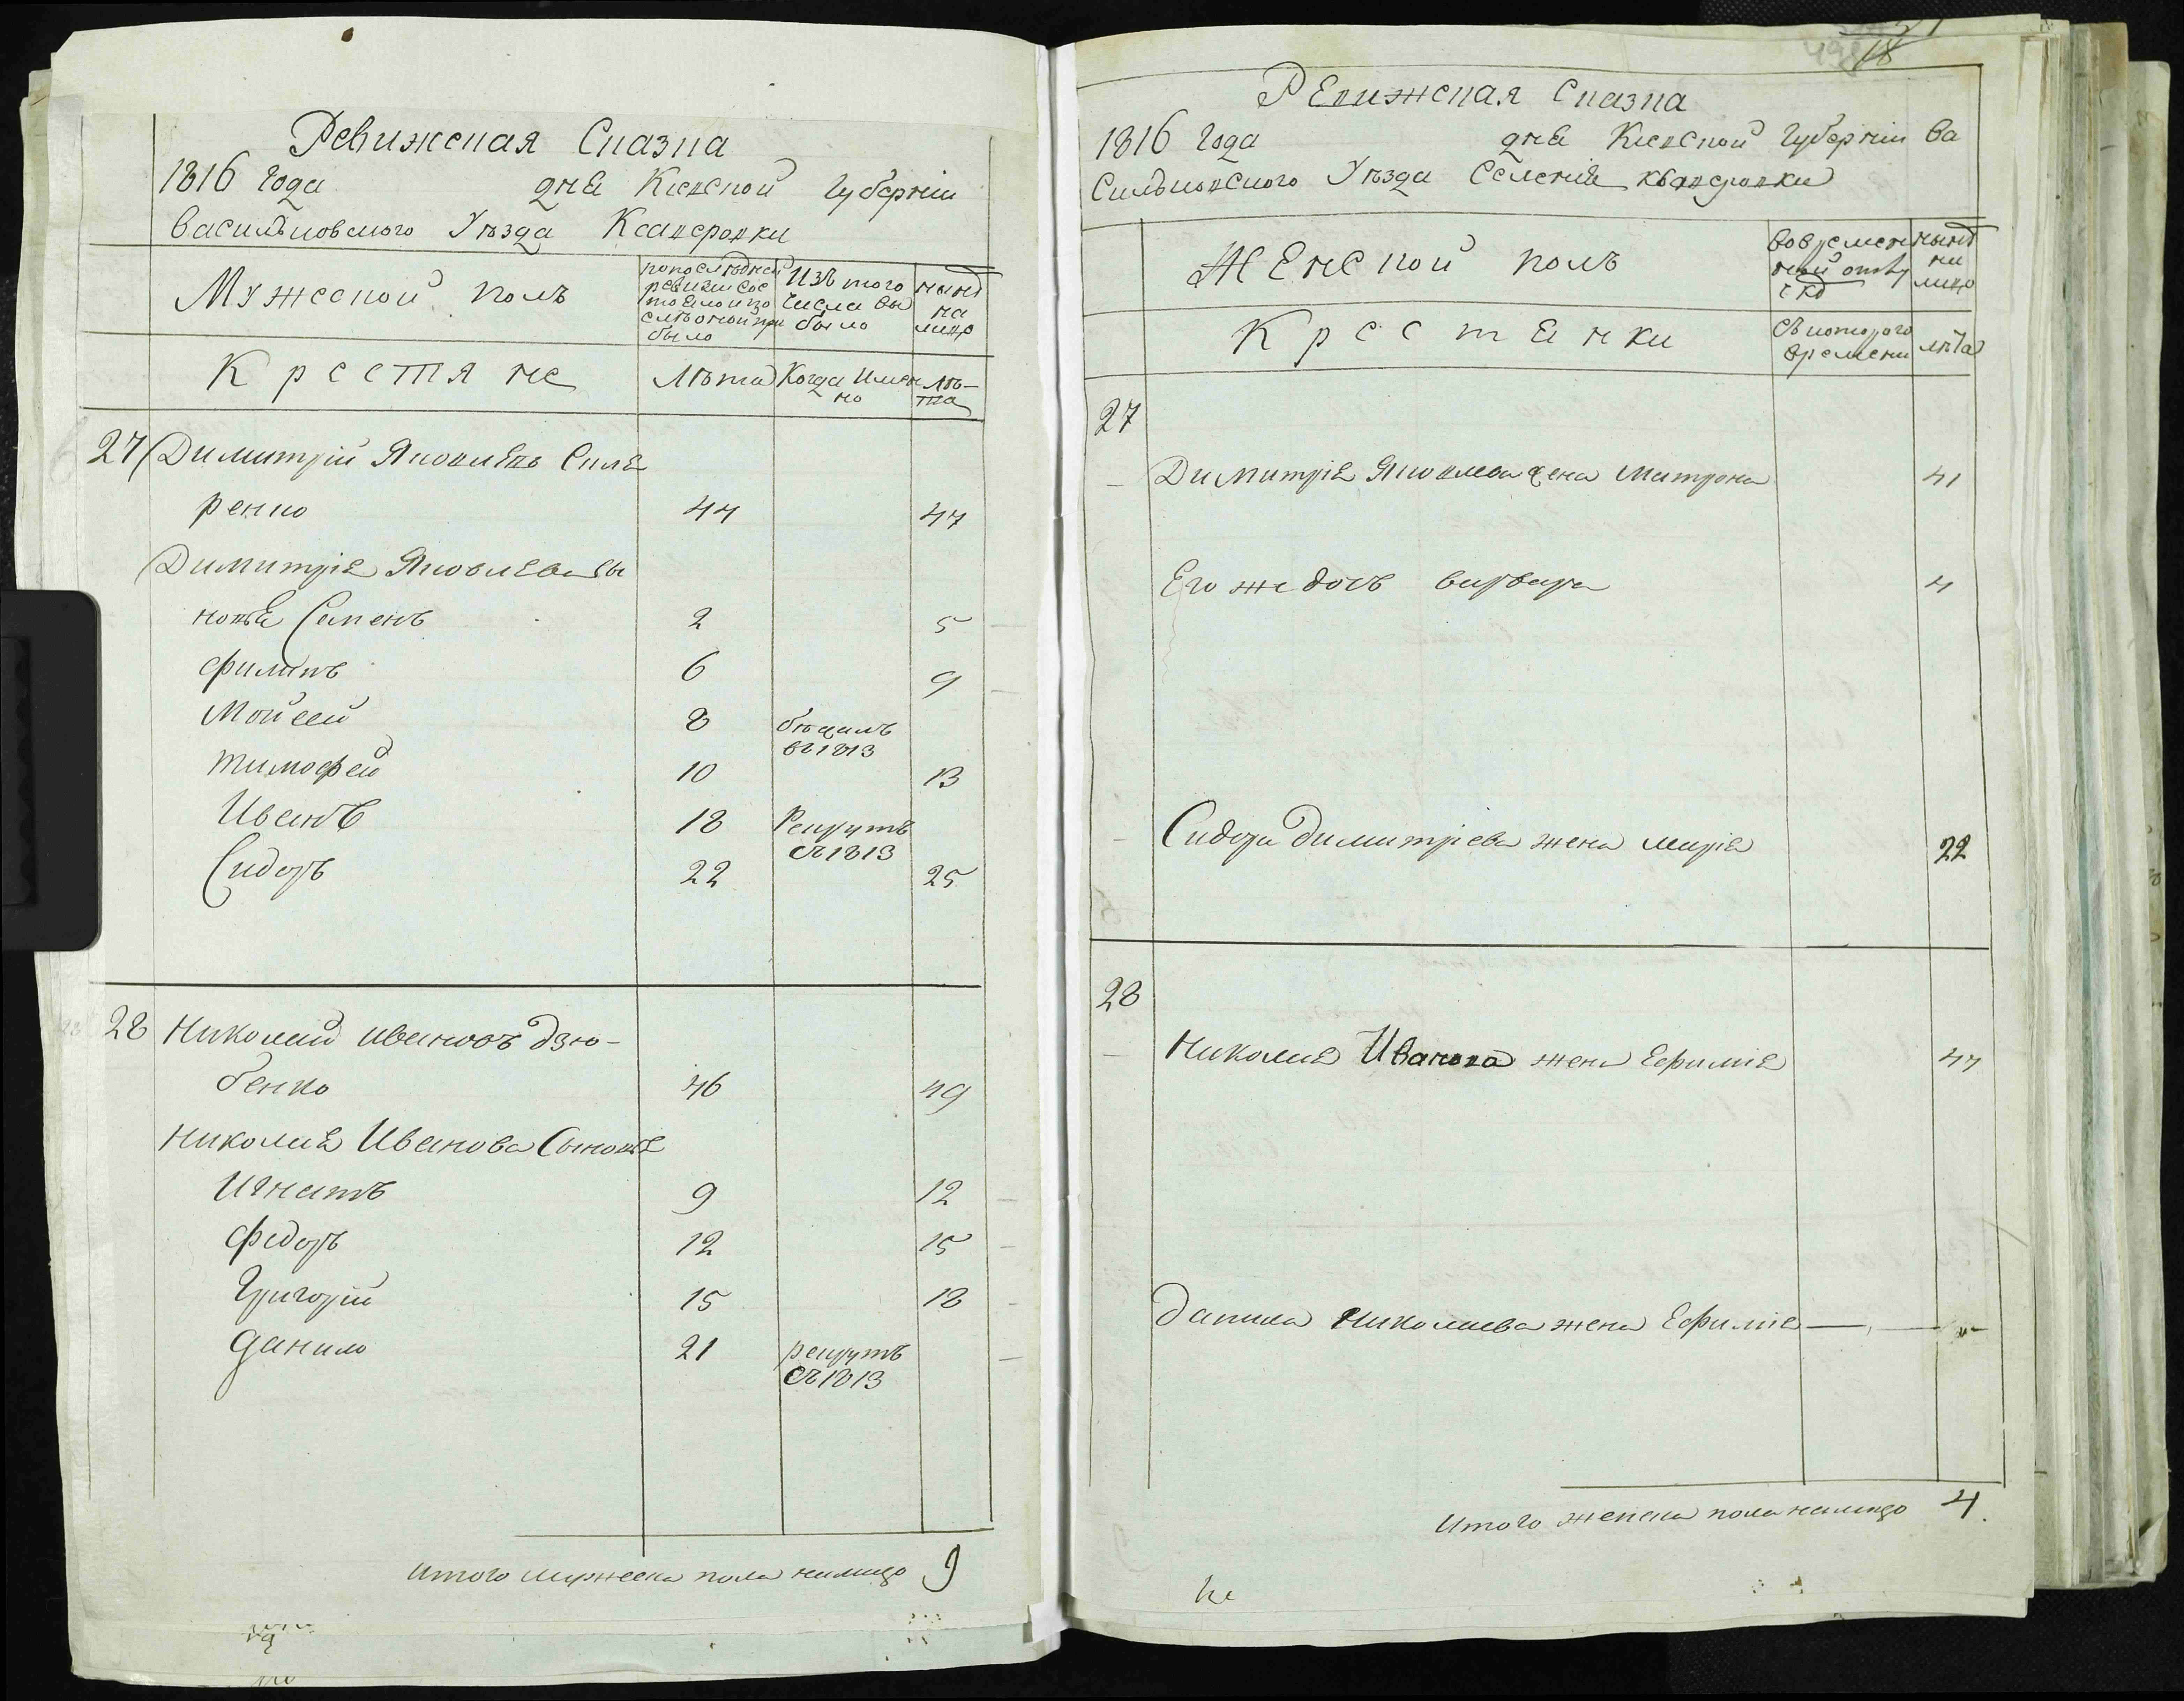 Ревижская Сказка
1816 года дня Киевской Губернiи
Васильковского Уѣзда Ксаверовки
Мужеской полъ
попослѣдней ревизiи состояло и после оной прибыло
Изъ того числа выбыло
нынѣ на лицо
Крестяне
Лѣта
Когда Именно
Лѣ-та
27 Димитрiй Яковлевъ Скля
ренко 44 47
Димитрiя Яковлева сы
новья Семенъ 2 5
филипъ 6 9
Мойсей 8 бѣжалъ въ 1813
тимофей 10 13
Иванъ 18 Рекрутъ съ 1813
Сидоръ 22 25
28 Николай Ивановъ дзю-
бенко 46 49
Николая Иванова Сыновья
Игнатъ 9 12
федоръ 12 15
Григорiй 15 18
данило 21 рекрутъ съ 1813
Итого мужеска пола налицо 9
18
РЕвижская Сказка
1816 года дня Киевской Губернiи Ва
сильковского Уѣзда Селения ксаверовки
ЖЕнской полъ
во временной отлучкѣ
нынѣ на лицо
Крестянки
Съ которого времени
лѣта
27
Димитрiя Яковлева жена Матрона 41
Его же дочь варвара 4
Сидора Димитрiева жена марiя 22
28
Николая Иванова жена Ефимiя 44
данила Николаева жена Ефимiя
Итого женска пола налицо 4.